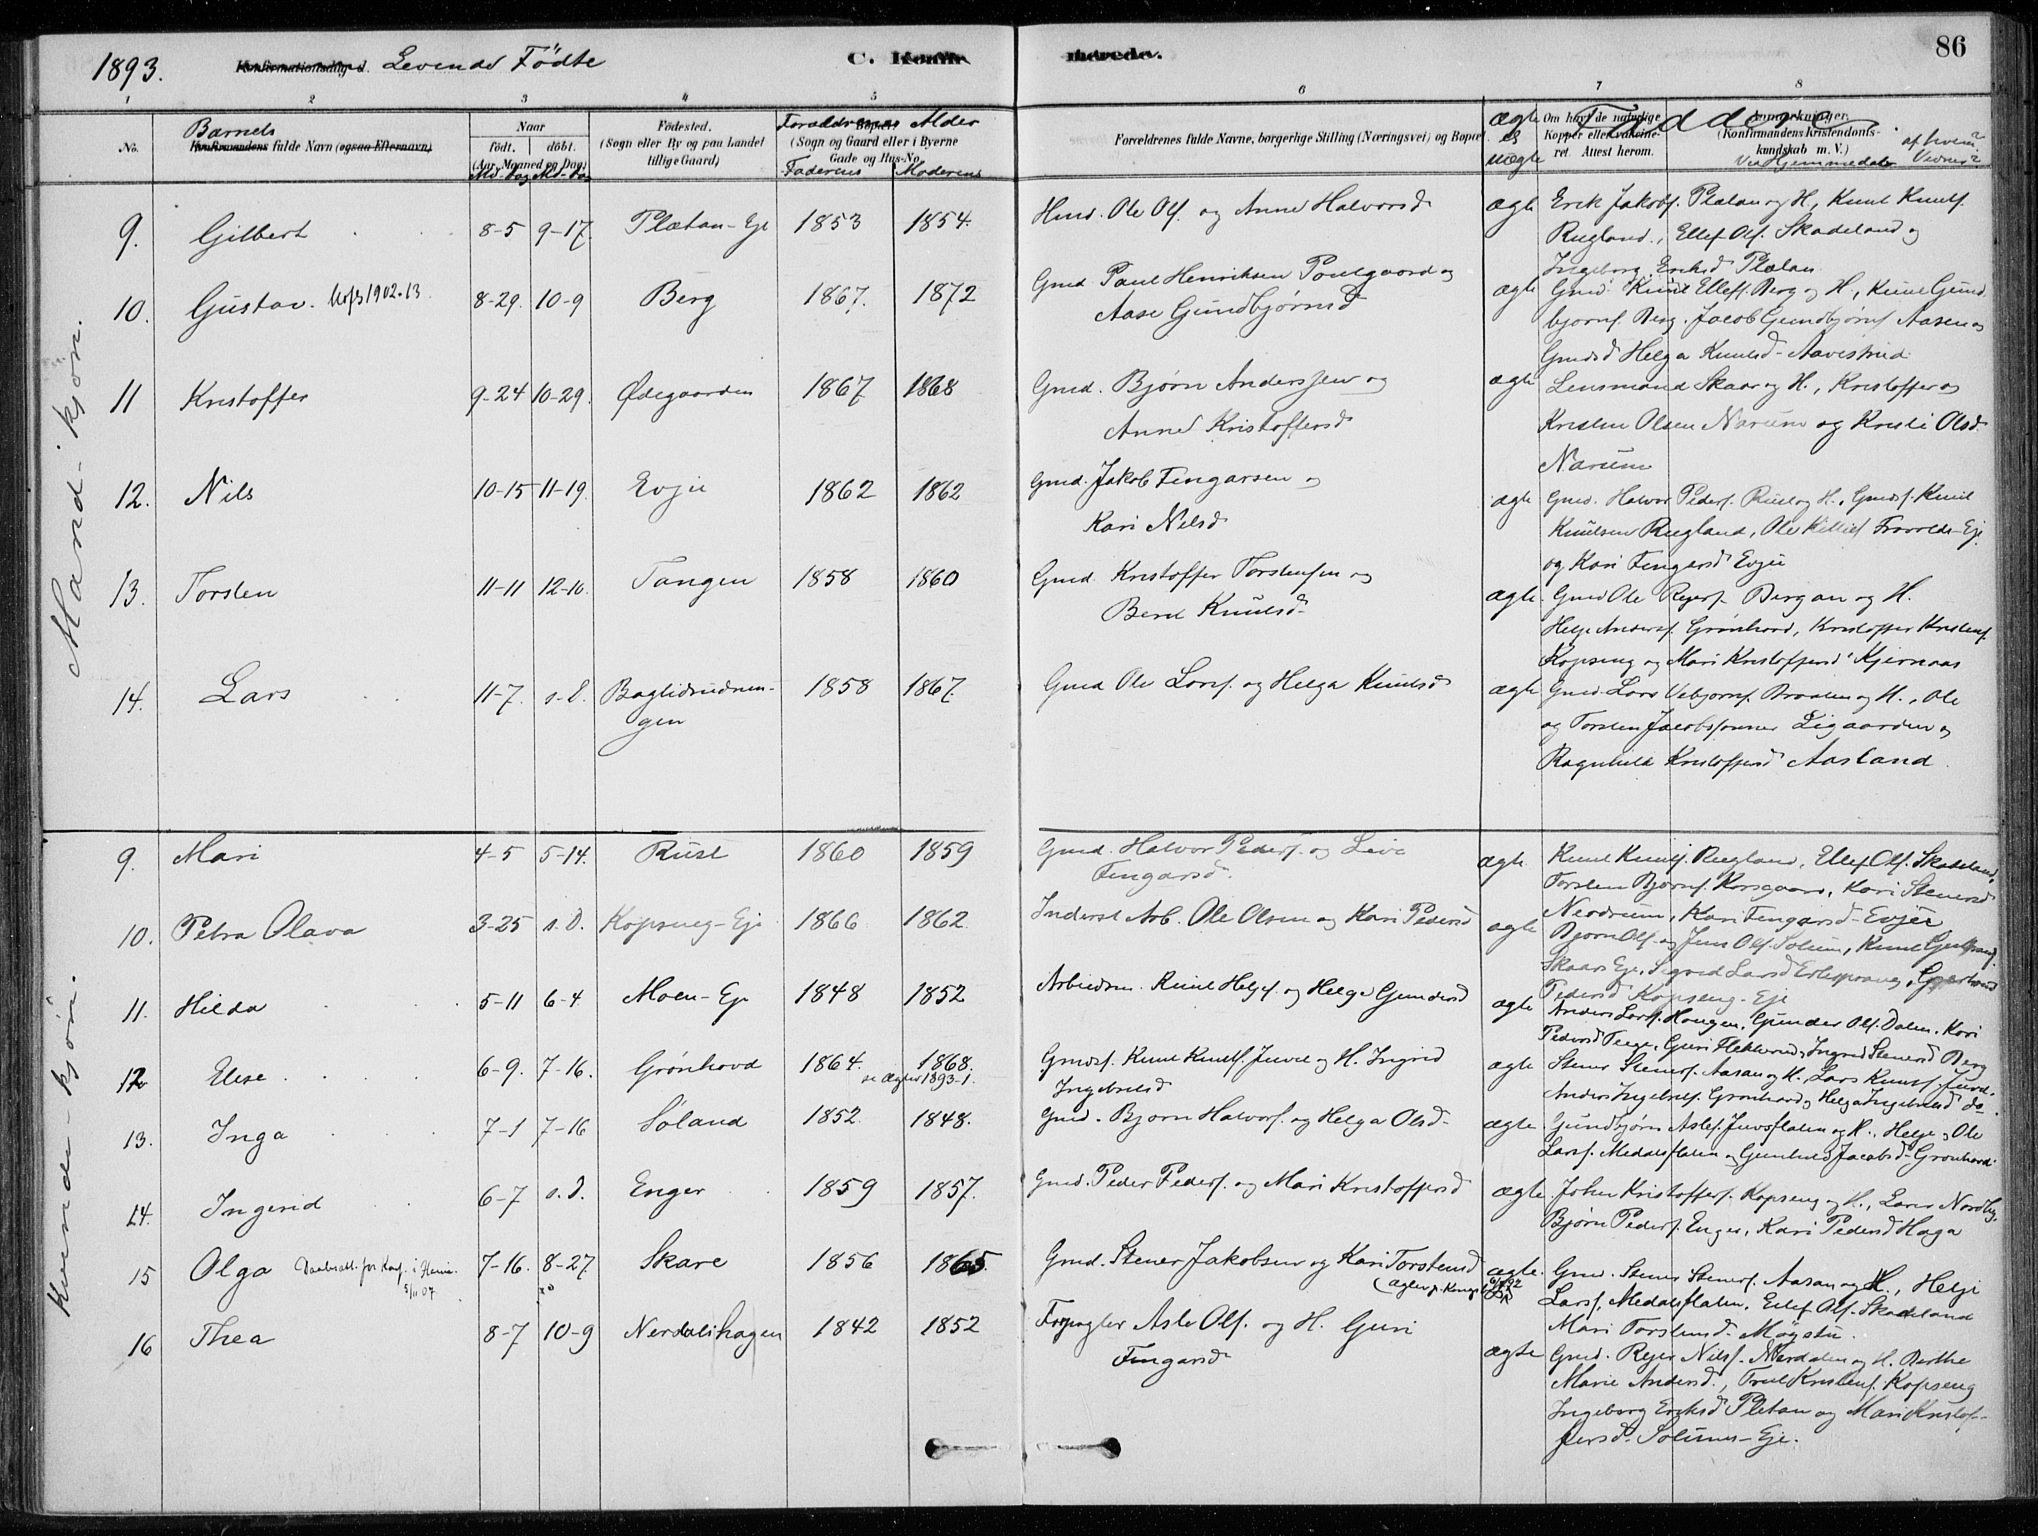 1893. Konfirmationsdag d. Levende Födte C. Konfir merede. 86
1 2 3 4 5 6 7 8
No. Barnets
Konfirmandens fulde Navn (ogsaa Efternavn)
Naar
født. døbt.
(Aar, Maaned og Dag)
Md-Dag Md-Dag
Fødested.
(Sogn eller By og paa Landet
tillige Gaard)
Forældrenes Alder
Bopæl
(Sogn og Gaard eller i Byerne
Gade og Hus-No.
Faderens Moderens
Forældrenes fulde Navne, borgerlige Stilling (Næringsvei) og Bopæl
ægte
el
uægte
Om havt de naturlige
Kopper eller Vaccine-
ret. Attest herom.
Faddere
Anmerkninger.
(Konfirmandens Kristendoms-
kundskab m. V.)
Ved Hjemmedaab af hvem?
Vidner?
Mand-kjøn.
9. Gilbert 8-5 9-17. Plætan-Eje 1853 1854. Hmd. Ole Olsf. og Anne Halvorsd ægte Erik Jakobsf. Plætan og H., Knut Knutsf.
Rugland, Ellef Olsf. Skadeland og
Ingeborg Eriksd Plætan
10. Gustav. 1902.13 8-29. 10-9 Berg 1867. 1872 Gmd Paul Henriksen Poulgaard og
Aase Gundbjørnsd
ægte Gmd. Knut Ellefs. Berg og H., Knut Gund
bjørnsf. Berg. Jacob Gundbjørnsf Aasen og
Gmdsd Helga Knutsd Aavestrud
11 Kristoffer 9-24 10-29. Ødegaarden 1867. 1868 Gmd. Bjørn Anderssen og
Anne Kristoffersd
ægte Lensmand Skaar og H., Kristoffer og
Kristen Olsen Narum og Kristi Olsd.
Narum
12. Nils 10-15 11-19. Evju 1862 1862 Gmd. Jakob Fingarsen og
Kari Nilsd
ægte Gmd. Halvor Pedersf. Rust og H., Gmdsf. Knut
Knutsen Rugland, Ole -Eje
og Kari Fingarsd Evju
13. Torsten 11-11 12-10. Tangen 1858 1860 Gmd. Kristoffer Torstensen og
Berit Knutsd-
ægte. Gmd Ole Reiersf. Bergan og H.
Helge Andersf. Grønhovd, Kristoffer Kristensf.
Kopseng og Mari Kristoffersd Kjernaas
14. Lars 11-7. s.d. Baglidrudmen-
gen
1858 1867. Gmd Ole Larsf. og Helga Knutsd ægte Gmd. Lars Vebjørnsf. Braaten og H., Ole
og Torsten Jacobssønner Ligaarden og
Ragnhild Kristoffersd Aasland.
Kvinde-kjøn.
9. Mari 4-5 5-14. Rust 1860 1859 Gmd. Halvor Pedersf. og Live
Fingarsd.
ægte Knut Knutsf. Rugland, Ellef Olsf. Skadeland,
Torsten Bjørnsf. Korsgaard, Kari Stenersd
Nerdrum, Kari Fingarsd-Evju
10. Petra Olava 3-25 s.d. Kopseng-Eje 1866 1862. Inderst Arb. Ole Olsen og Kari Pedersd ægte Bjørn Olsf. og Jens Olsf. Solum, Knut Gulbrandsf.
Skaars Eje, Sigrid Larsd Erlesprang,
Pedersd Kopseng-Eje
11. Hilda 5-11 6-4. Moen-Eje 1848 1852 Arbeidsm. Knut Helgesf. og Helge Gundersd ægte Anders Larsf. Haugen, Gunder Olsf. Dalen, Kari
Pedersd Teege, Guri Flekkerud, Ingrid Stenersd Berg
12 Elise 6-9. 7-16. Grønhovd 1864. 1868.
se Ægtev 1893-1.
Gmdsf. Knut Knutsf. Juvet og H. Ingrid
Ingebretsd
ægte Stener Stenersf. Aasan og H., Lars Knutsf. Juvet,
Anders Ingebretsf. Grønhovd og Helga Ingebretsd do
13. Inga 7-1 7-16 Søland 1852. 1848. Gmd. Bjørn Halvorsf. og Helga Olsd- ægte Gundbjørn Aslesf. Juvsflaten og H., Helge og Ole
Larsf. Medalsflaten og Gunhild Jacobsd-Grønhovd.
14. Ingerid 6-7 s.d. Enger 1859 1857. Gmd. Peder Pedersf. og Mari Kristoffersd ægte. Johan Kristoffersf. Kopseng og H., Lars Nordby,
Bjørn Pedersf. Enger, Kari Pedersd Haga
15 Olga Daabsatt. for Konf. i Heim.
5/11 07
7-16. 8-27. Skare 1856 1865. Gmd. Stener Jakobsen og Kari Torstensd ægte. Gmd. Stener Stenersf. Aasan og H., Helge
Larsf. Medalsflaten, Ellef Olsf. Skadeland
Mari Torstensd. Møystu.
16 Thea 8-7 10-9 Nerdalshagen 1842 1852 Forpagter Asle Olsf. og H. Guri
Fingarsd
ægte Gmd. Reier Nilsf. Nerdalen og H. Berthe
Marie Andersd., Truls Kristensf. Kopseng
Ingeborg Eriksd Pletan og Mari Kristof-
fersd. Solums-Eje.